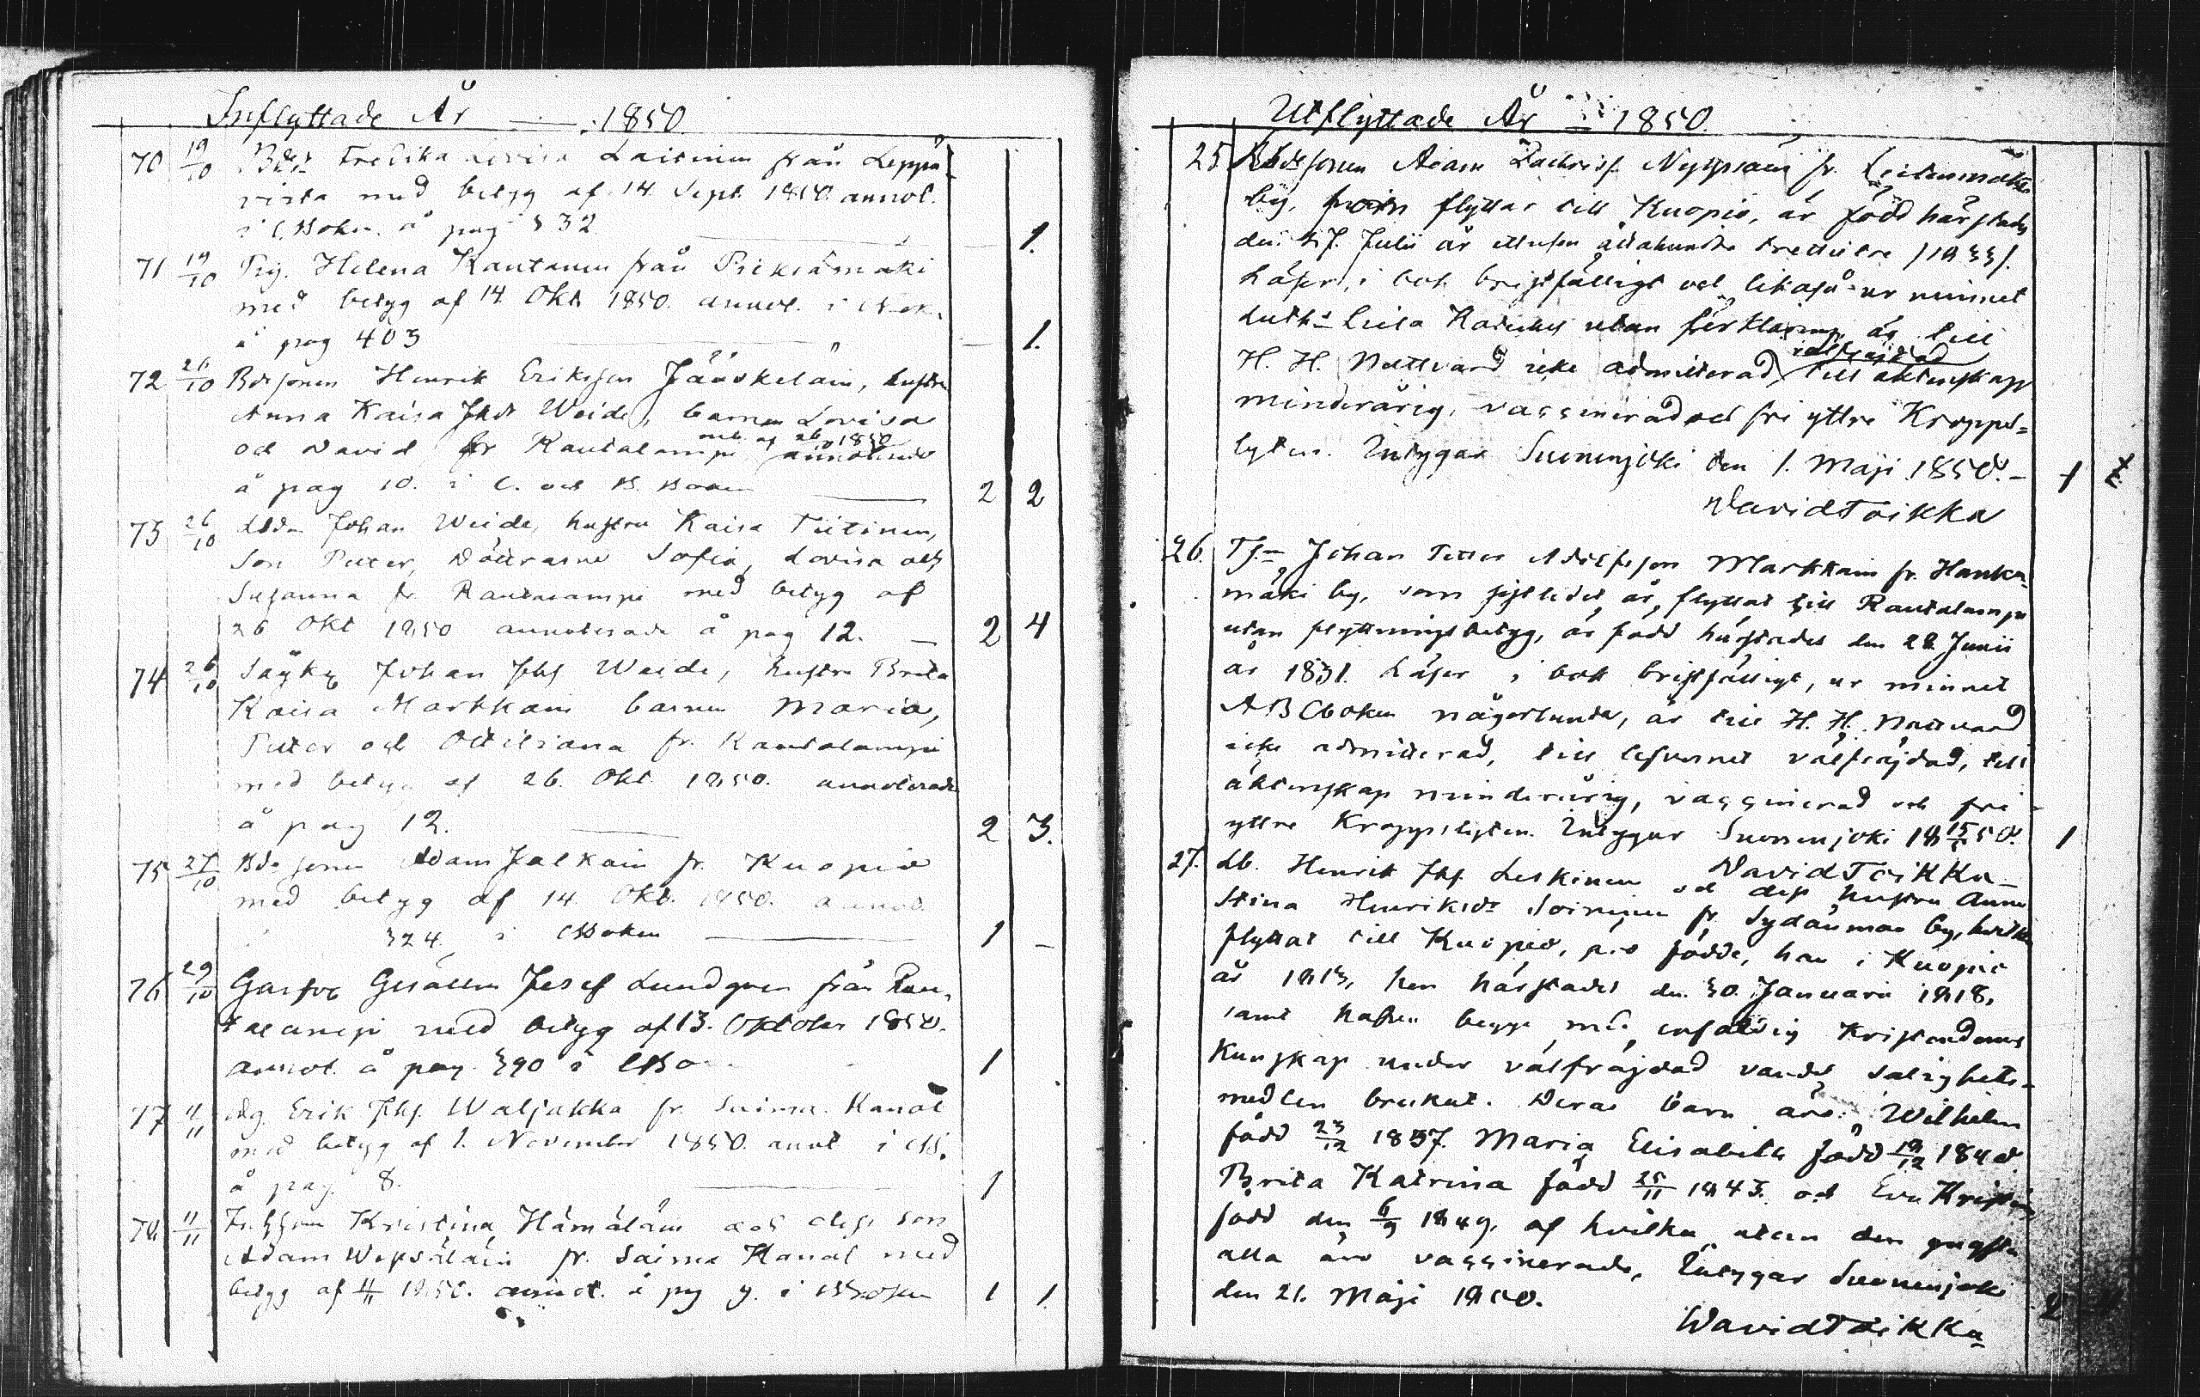 Inflyttade År 1850.
70 19/10 Bdr Lovisa Laitinen från Leppä-
virta med betyg af 14 Sept. 1850. annot.
i C. Boken å pag 532. 1.
71 19/10 Pig. Helena Kautanen från Pieksämäki
med betyg af 14 Okt. 1850. annot. i
å pag 403 1.
72 26/10 Bdesonen Henrik Eriksson Jääskeläin, hustru
Anna Kaisa Jhdr Weide, barnen Lovisa
och David fr Rautalampi med af 26/10 1850 annoterade
å pag 10. i C. och B. Boken 2 2
73 26/10 Johan Weide, hustru Kaisa Tiitinen,
Son Petter, Döttrarne Sofia, Lovisa och
Susanna fr. Rautalampi med betyg af
26 Okt 1850 annoterade å pag 12. 2 4
74 26/10 Johan Jhs Weide, hustru Brita
Kaisa Markkain barnen Maria,
Petter och Ottiliana fr. Rautalampi
med betyg af 26. Okt. 1850. annoterade
å pag 12. 2 3.
75 27/10 Bdesonen Adam Jalkain fr. Kuopio
med betyg af 14 Okt. 1850. annot.
324. i Boken 1 -
76 29/10 Josef Lundgren från Rau-
talampi med betyg af 13. Oktober 1850.
annot. å pag. 390 i 1
77 4/11 Erik Jhs. Waljakka fr. Saima Kanal
med betyg af 1. November 1850. annot i
å pag. 8. 1
78. 11/11 Kristina Hämäläin och dess son
Adam fr. Saima Kanal med
betyg af 1850. annot. å pag 9. i Boken 1 1.
Utflyttade År 1850.
25 Bdesonen Adam Zachrisf. Nyyssäin fr. Lintunmäki
by, som flyttar till Kuopio, är född härstädes
den 27. Julii år ettusen åttahundra trettiotre /1833/.
Läser i bok bristfälligt och likaså ur minnet
Luth: Lilla Kateches utan förklaring, är till
H. H. Nattvard icke admitterad, välfräjdad till äktenskap
minderårig, vaccinerad och fri yttre Kropps-
lyten. Intygar Suonenjoki den 1. Maji 1850. 1
David Toikka
26. Johan Petter Adolfsson Markkain fr. Hanka-
mäki by, som sistlidet år flyttat till Rautalampi
utan flyttningsbetyg, är född härstädes den 28 Junii
år 1831. Läser i bok bristfälligt, ur minnet
ABCboken någorlunda, är till H. H. Nattvard
icke admitterad, till lefvernet välfräjdad, till
äktenskap minderårig, vaccinerad och fri
yttre Kroppslyten. Intygar Suonenjoki 18 15/5 50. 1
David Toikka
27. Lb. Henrik Jhs. Leskinen och dess hustru Anna
Stina Henriksdr Soininen fr. Sydänmaa by, hvilka
flyttat till Kuopio, äro födde, han i Kuopio
år 1813, hon härstädes den 30. Januari 1818,
samt hafva begge med enfaldig Kristendoms
Kunskap under välfräjdad vandel salighets-
medlen brukat. Deras barn äro: Wilhelm
född 23/12 1837. Maria Elisabeth född 1840.
Brita Katrina född 25/11 1843. och Eva Kristina
född den 6/9 1849, af hvilka utan den yngsta
alla äro vaccinerade, Intygar Suonenjoki
den 21. Maji 1850.
David Toikka